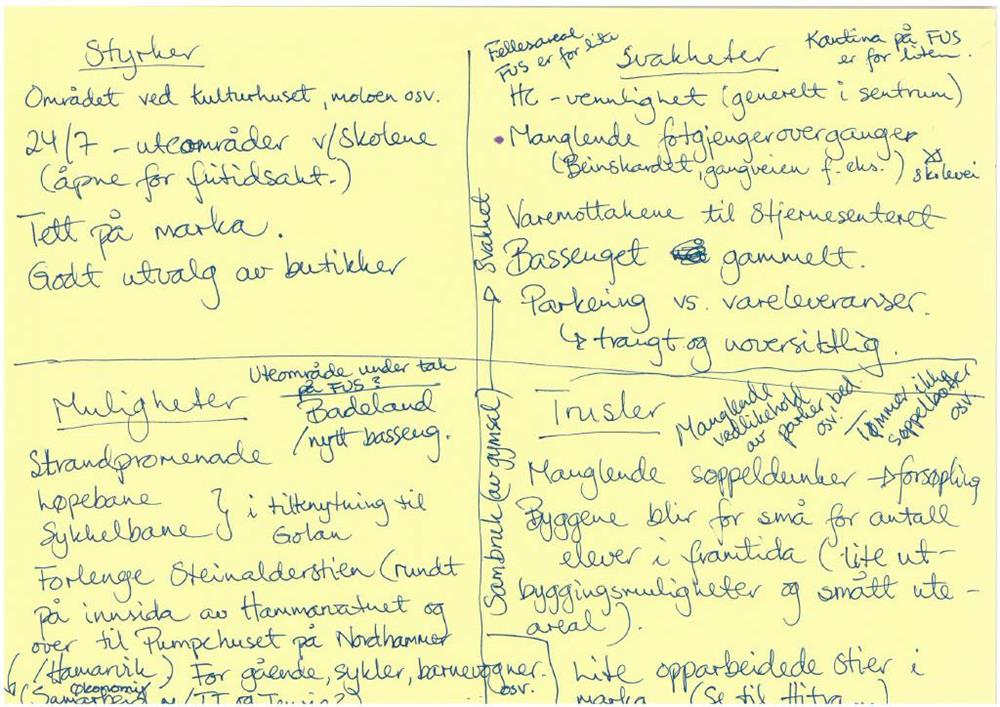 Styrker
Området ved kulturhuset, moloen osv.
24/7 - uteområder v/skolene
(åpne for fritidsakt.)
Tett på marka.
Godt utvalg av butikker
Fellesareal
FUS er for lita
Svakheter
Kantina på FUS
er for liten.
HC - vennlighet (generelt i sentrum)
• Manglende fotgjengeroverganger
(Beinskardet, gangveien f. eks.)
skolevei
Varemottakene til Stjernesenteret
Bassenget gammelt.
Parkering vs. vareleveranser.
↳ trangt og uoversiktlig.
Sambruk (av gymsal) → Svakhet
Muligheter
Uteområde under tak
på FUS?
Badeland
/nytt basseng.
Strandpromenade
Løpebane
Sykkelbane } i tilknytning til
Golan
Forlenge Steinalderstien (rundt
på innsida av Hammarvatnet og
over til Pumpehuset på Nordhammer
/Hamarvik) For gående, sykler, barnevogner.
osv.
økonomisk
(Samarbeid m/TT og
Trusler
Manglende
vedlikehold
av parker, bed.
osv.
Tømmer ikke
søppelbøtter
osv.
Manglende søppeldunker → forsøpling
Byggene blir for små for antall
elever i framtida (lite ut-
byggingsmuligheter og smått ute-
areal).
Lite opparbeidede stier i
marka (Se til Hitra...)